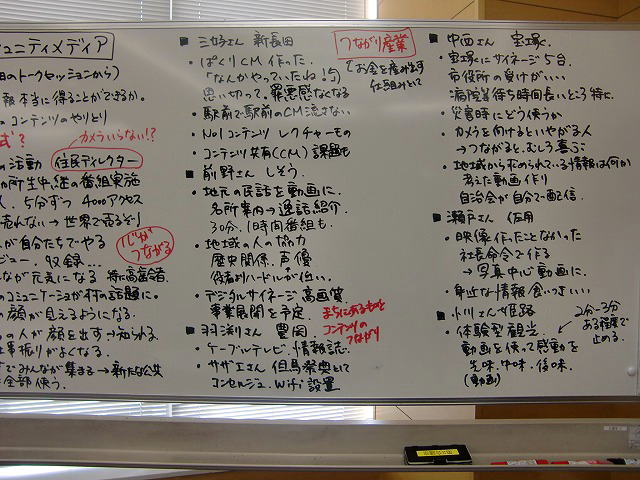 ュニティメディア
日のトークセッションから)
報本当に得ることができるか。
のコンテンツのやりとり
式? カメラいらない!?
の活動 住民ディレクター
カ所生中継の番組実施
人、5分ずつ 4000アクセス
売れない→世界で売るぞり
が自分たちでやる
心がつながる
ビュー、92録…
なが元気になる 特に高齢者.
のコミュニケーションが村の話題に。
の顔が見えるようになる.
の人が顔を出す→知られる
振りがよくなる.
でみんが集まる→新たな公共
全部使う.
■ 三姉さん 新長田
・ぱくりCM作った.
「なんかやっていたね!」
思い切って、罪悪感なくなる
・駅前で駅前のCM流さない
・No1コンテンツ レクチャーもの
・コンテンツ共有(CM)課題も
■ 前野さん しそう.
・地元の民話を動画に.
名所案内→逸話紹介.
30分、1時間番組も.
・地域の人の協力
歴史関係、声優
役者よりハードルが低い.
・デジタルサイネージ 高画質
事業展開を予定.
■ 羽渕さん 豊岡
・ケーブルテレビ、情報誌.
・サザエさん 但馬県央として
コンセルジュ.Wifi 設置
つながり産業
お金を産み出す
仕組みとして
まちにあるものと
コンテンツの
つながり
■ 中西さん 宝塚.
・宝塚にサイネージ5台.
市役所の受けがいい
病院等待ち時間長いところ特に.
・災害時にどう使うか
・カメラを向けるといやがる人
→つながると、むしろ喜ぶ
・地域から求められている情報は何か
考えた動画作り
自治会が自分で配信.
■ 瀬戸さん 佐用
・映像作ったことなかった
社長命令で作る
→写真中心動画に.
・身近な情報 食いつきいい
■ 小川さん 姫路
・体験型観光.
動画を使って感動を
先味、中味、後味.
(動画)
2分~3分
ある程度で
止める.